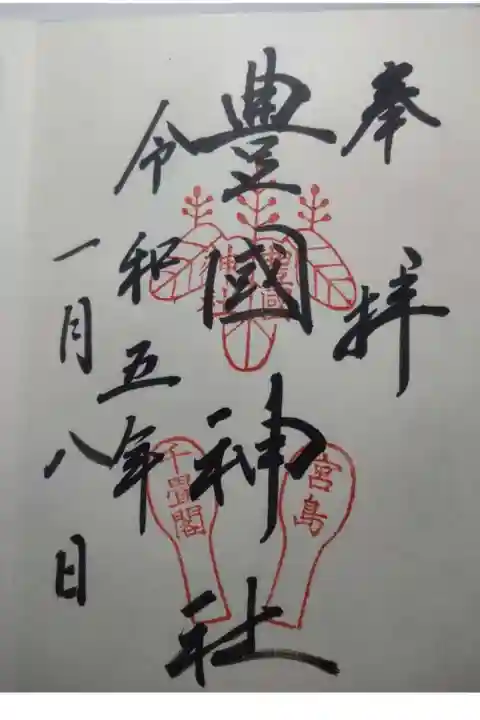 奉拝
豊國神社
令和五年
一月八日
宮島
千畳閣